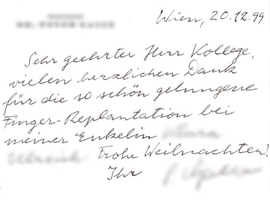 Wien, 20.12.99
Sehr geehrter Herr Kollege,
vielen herzlichen Dank
für die so schön gelungene
Finger-Replantation bei
meiner Enkelin
Frohe Weihnachten!
Ihr